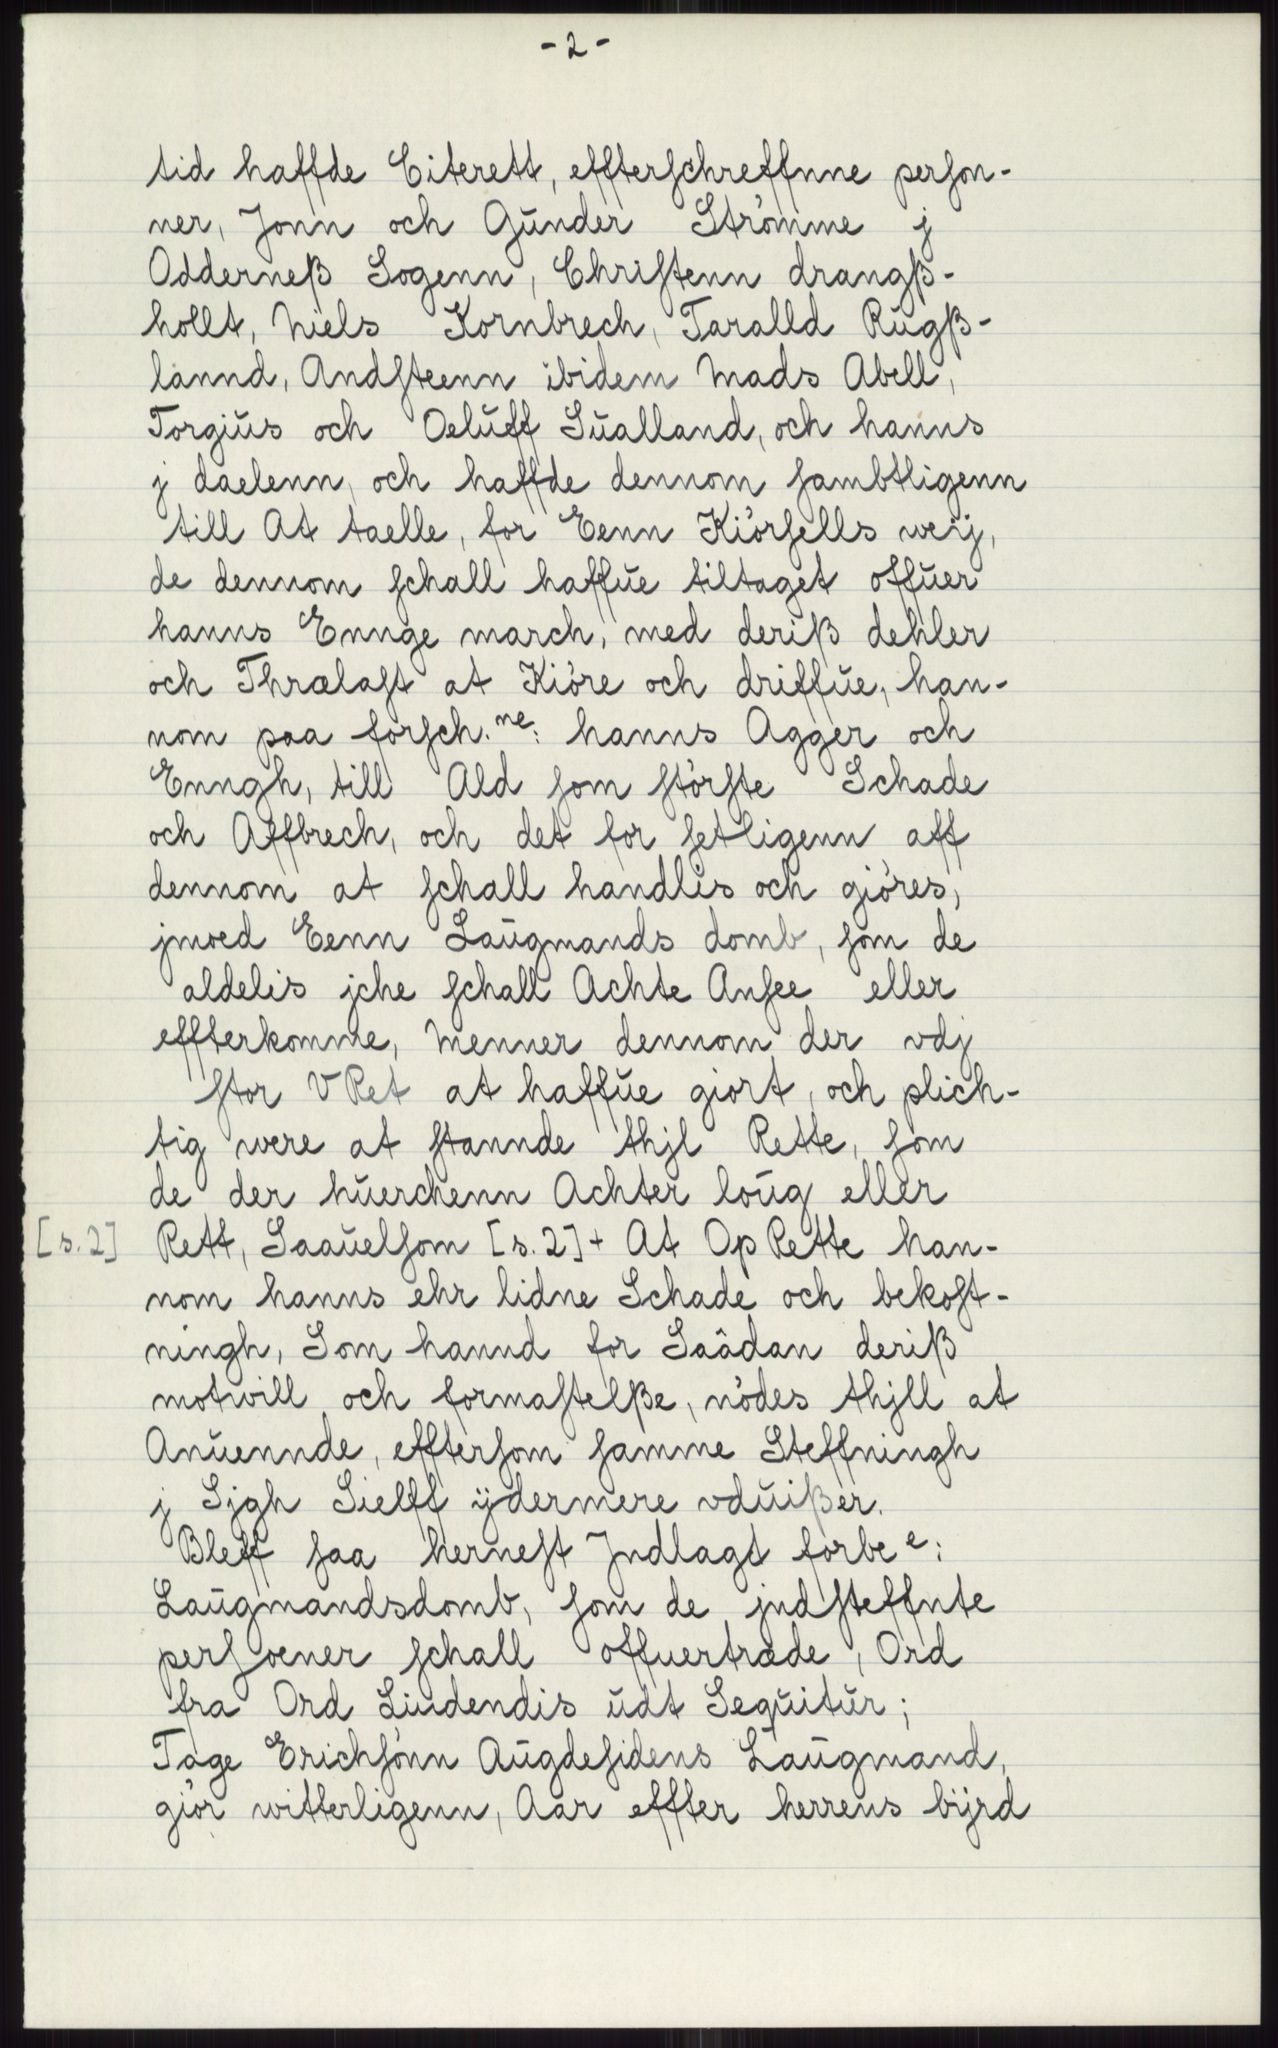 - 2 -
tid haffde Citerett, effterschreffnne person-
ner, Jonn och Gŭnder Strömme j
Odderneß Sogenn, Christenn drangß-
hollt, Niels Kornbrech, Taralld Rŭgß-
lannd, Andsteenn ibidem Mads Abell,
Torgiŭs och Oelŭff Sŭalland, och hanns
j daelenn, och haffde dennom sambtligenn
till At taelle, for Eenn Kiörsells weij,
de dennom schall haffŭe tiltaget offŭer
hanns Ennge march, med deriß dehler
och Thrælast at Kiöre och driffŭe, han-
nom paa forsch.ne: hanns Agger och
Enngh, till Ald som störste Schade
och Affbrech, och det for setligenn aff
dennom at schall handlis och giöres,
jmoed Eenn Laŭgmands domb, som de
aldelis jche schall Achte Ansee eller
effterkomme, Menner dennom der vdj
stor V Ret at haffŭe giort, och plich-
tig were at stannde thjl Rette, som
de der hŭerchenn Achter loŭg eller
[s.2] Rett, Saaŭelsom [s.2] + At Op Rette han-
nom hanns ehr lidne Schade och bekost-
ningh, Som hannd for Saådan deriß
motwill och formastelße, nödes thjll at
Anŭennde, efftersom samme Steffningh
j Sjgh Sielff ÿdermere vdŭißer.
Bleff saa hernest Jndlagt forbe e:
Laŭgmandsdomb, som de jndsteffnte
persoener schall offuertræde, Ord
fra Ord Liudendis ŭdt Seqŭitŭr;
Tage Erichsönn Aŭgdesidens Laŭgmand,
giör witterligenn, Aar effter herrens bÿrd